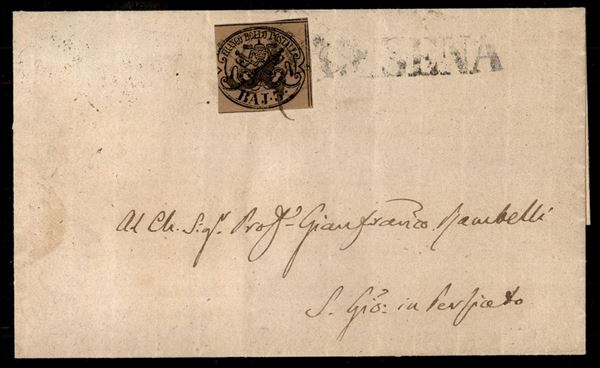 FRANCO BOLLO POSTALE
BAJ. 3
CESENA
Al Ch. Sig.r Prof.r Gianfranco.co Rambelli
S. Gio: in Persiceto